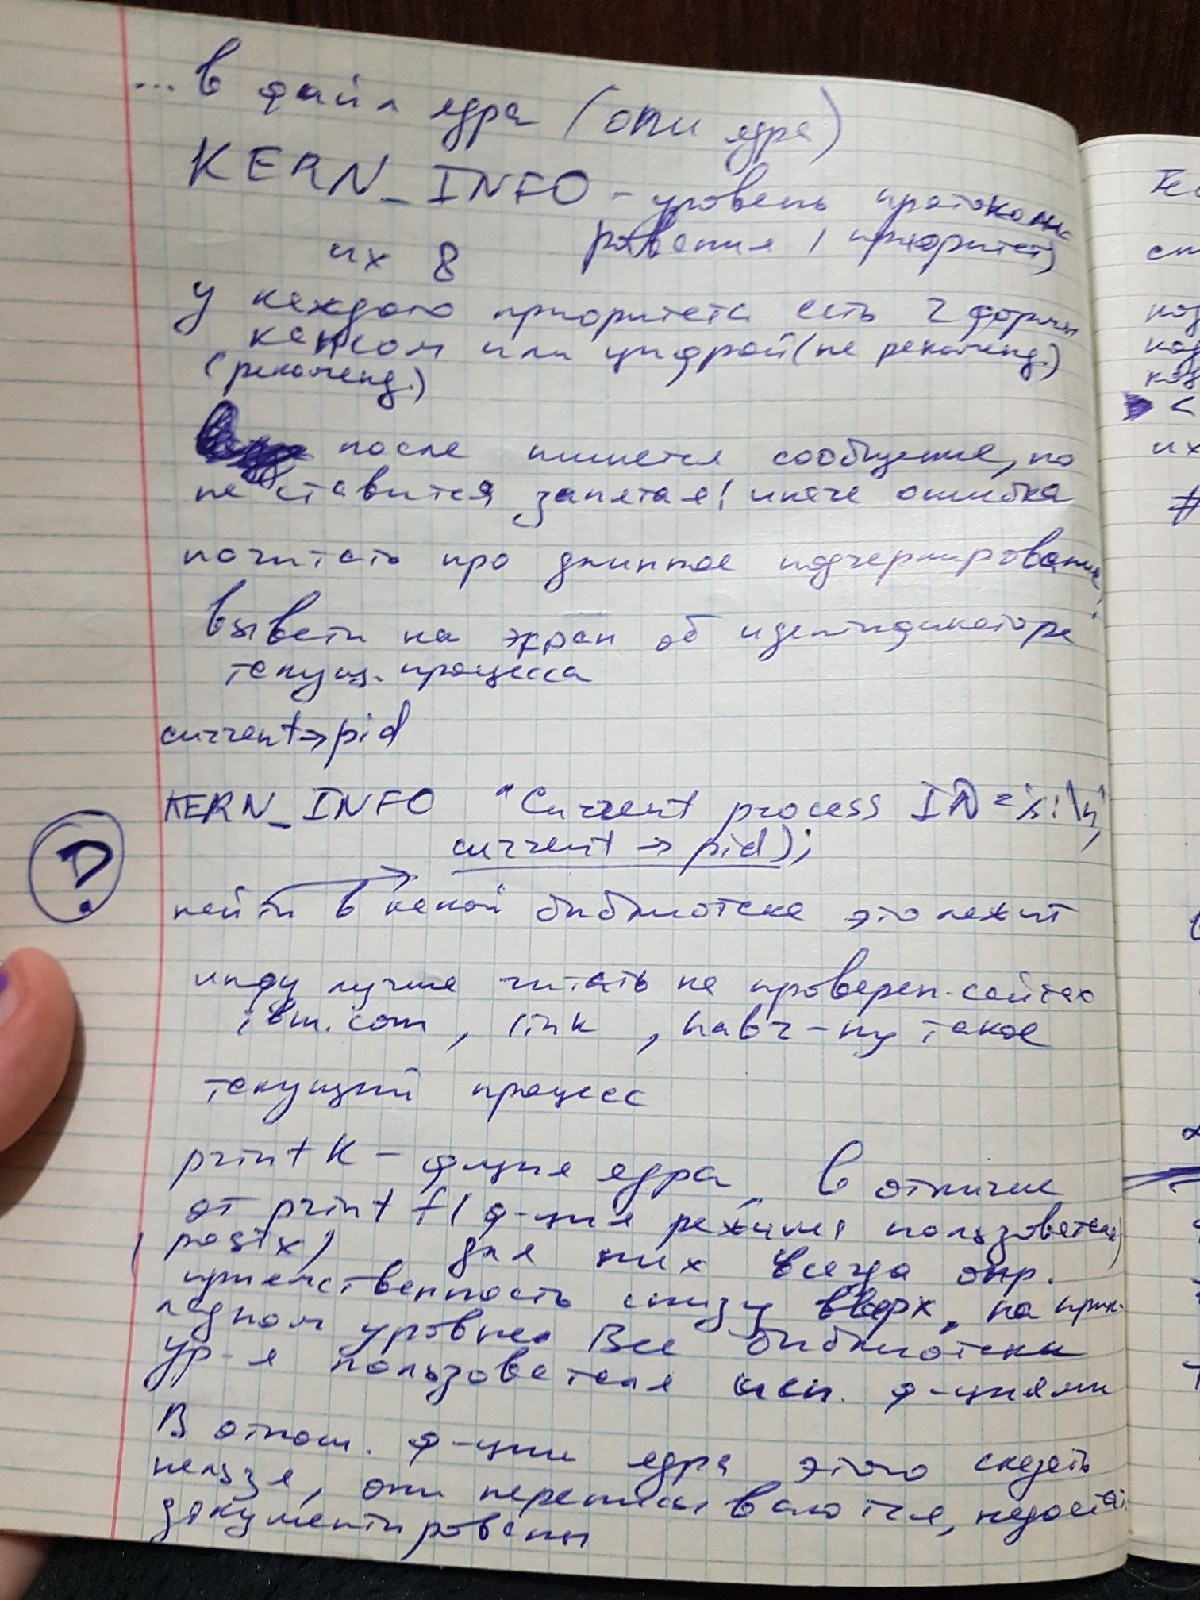 ... в файл ядра (опи ядра)
KERN_INFO - уровень протоколи
рования (приоритет)
их 8
у каждого приоритета есть 2 формы
капсом или цифрой (не рекоменд.)
(рекоменд.)
после пишется сообщение, но
не ставится запятая! иначе ошибка
почитать про длинное подчеркирование!
вывести на экран об идентификаторе
текущ. процесса
current->pid
KERN_INFO "Current process ID = %i\n",
current -> pid);
?
найти в какой библиотеке это лежит
инфу лучше читать на проверен. сайтах
ibm.com, link, habr - ну такое
текущий процесс
printk - функция ядра, в отличие
от printf (ф-ция режима пользователя)
(posix) для них всегда опр.
приемственность снизу вверх, на прик-
ладном уровне. Все библиотеки
ур-я пользователя исп. ф-циями
В отнош. ф-ции ядра этого сказать
нельзя, они переписываются, недостат.
документированы
Те